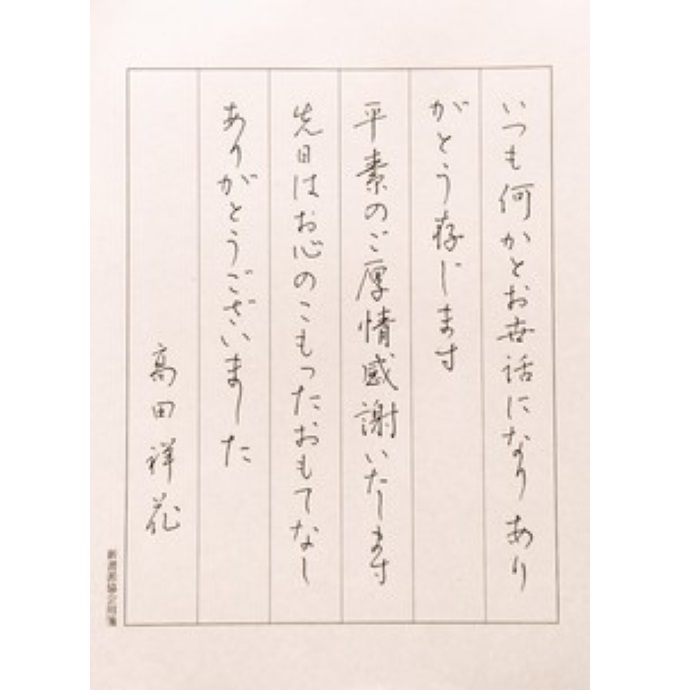 いつも何かとお世話になり あり
がとう存じます
平素のご厚情感謝いたします
先日はお心のこもったおもてなし
ありがとうございました
高田祥花